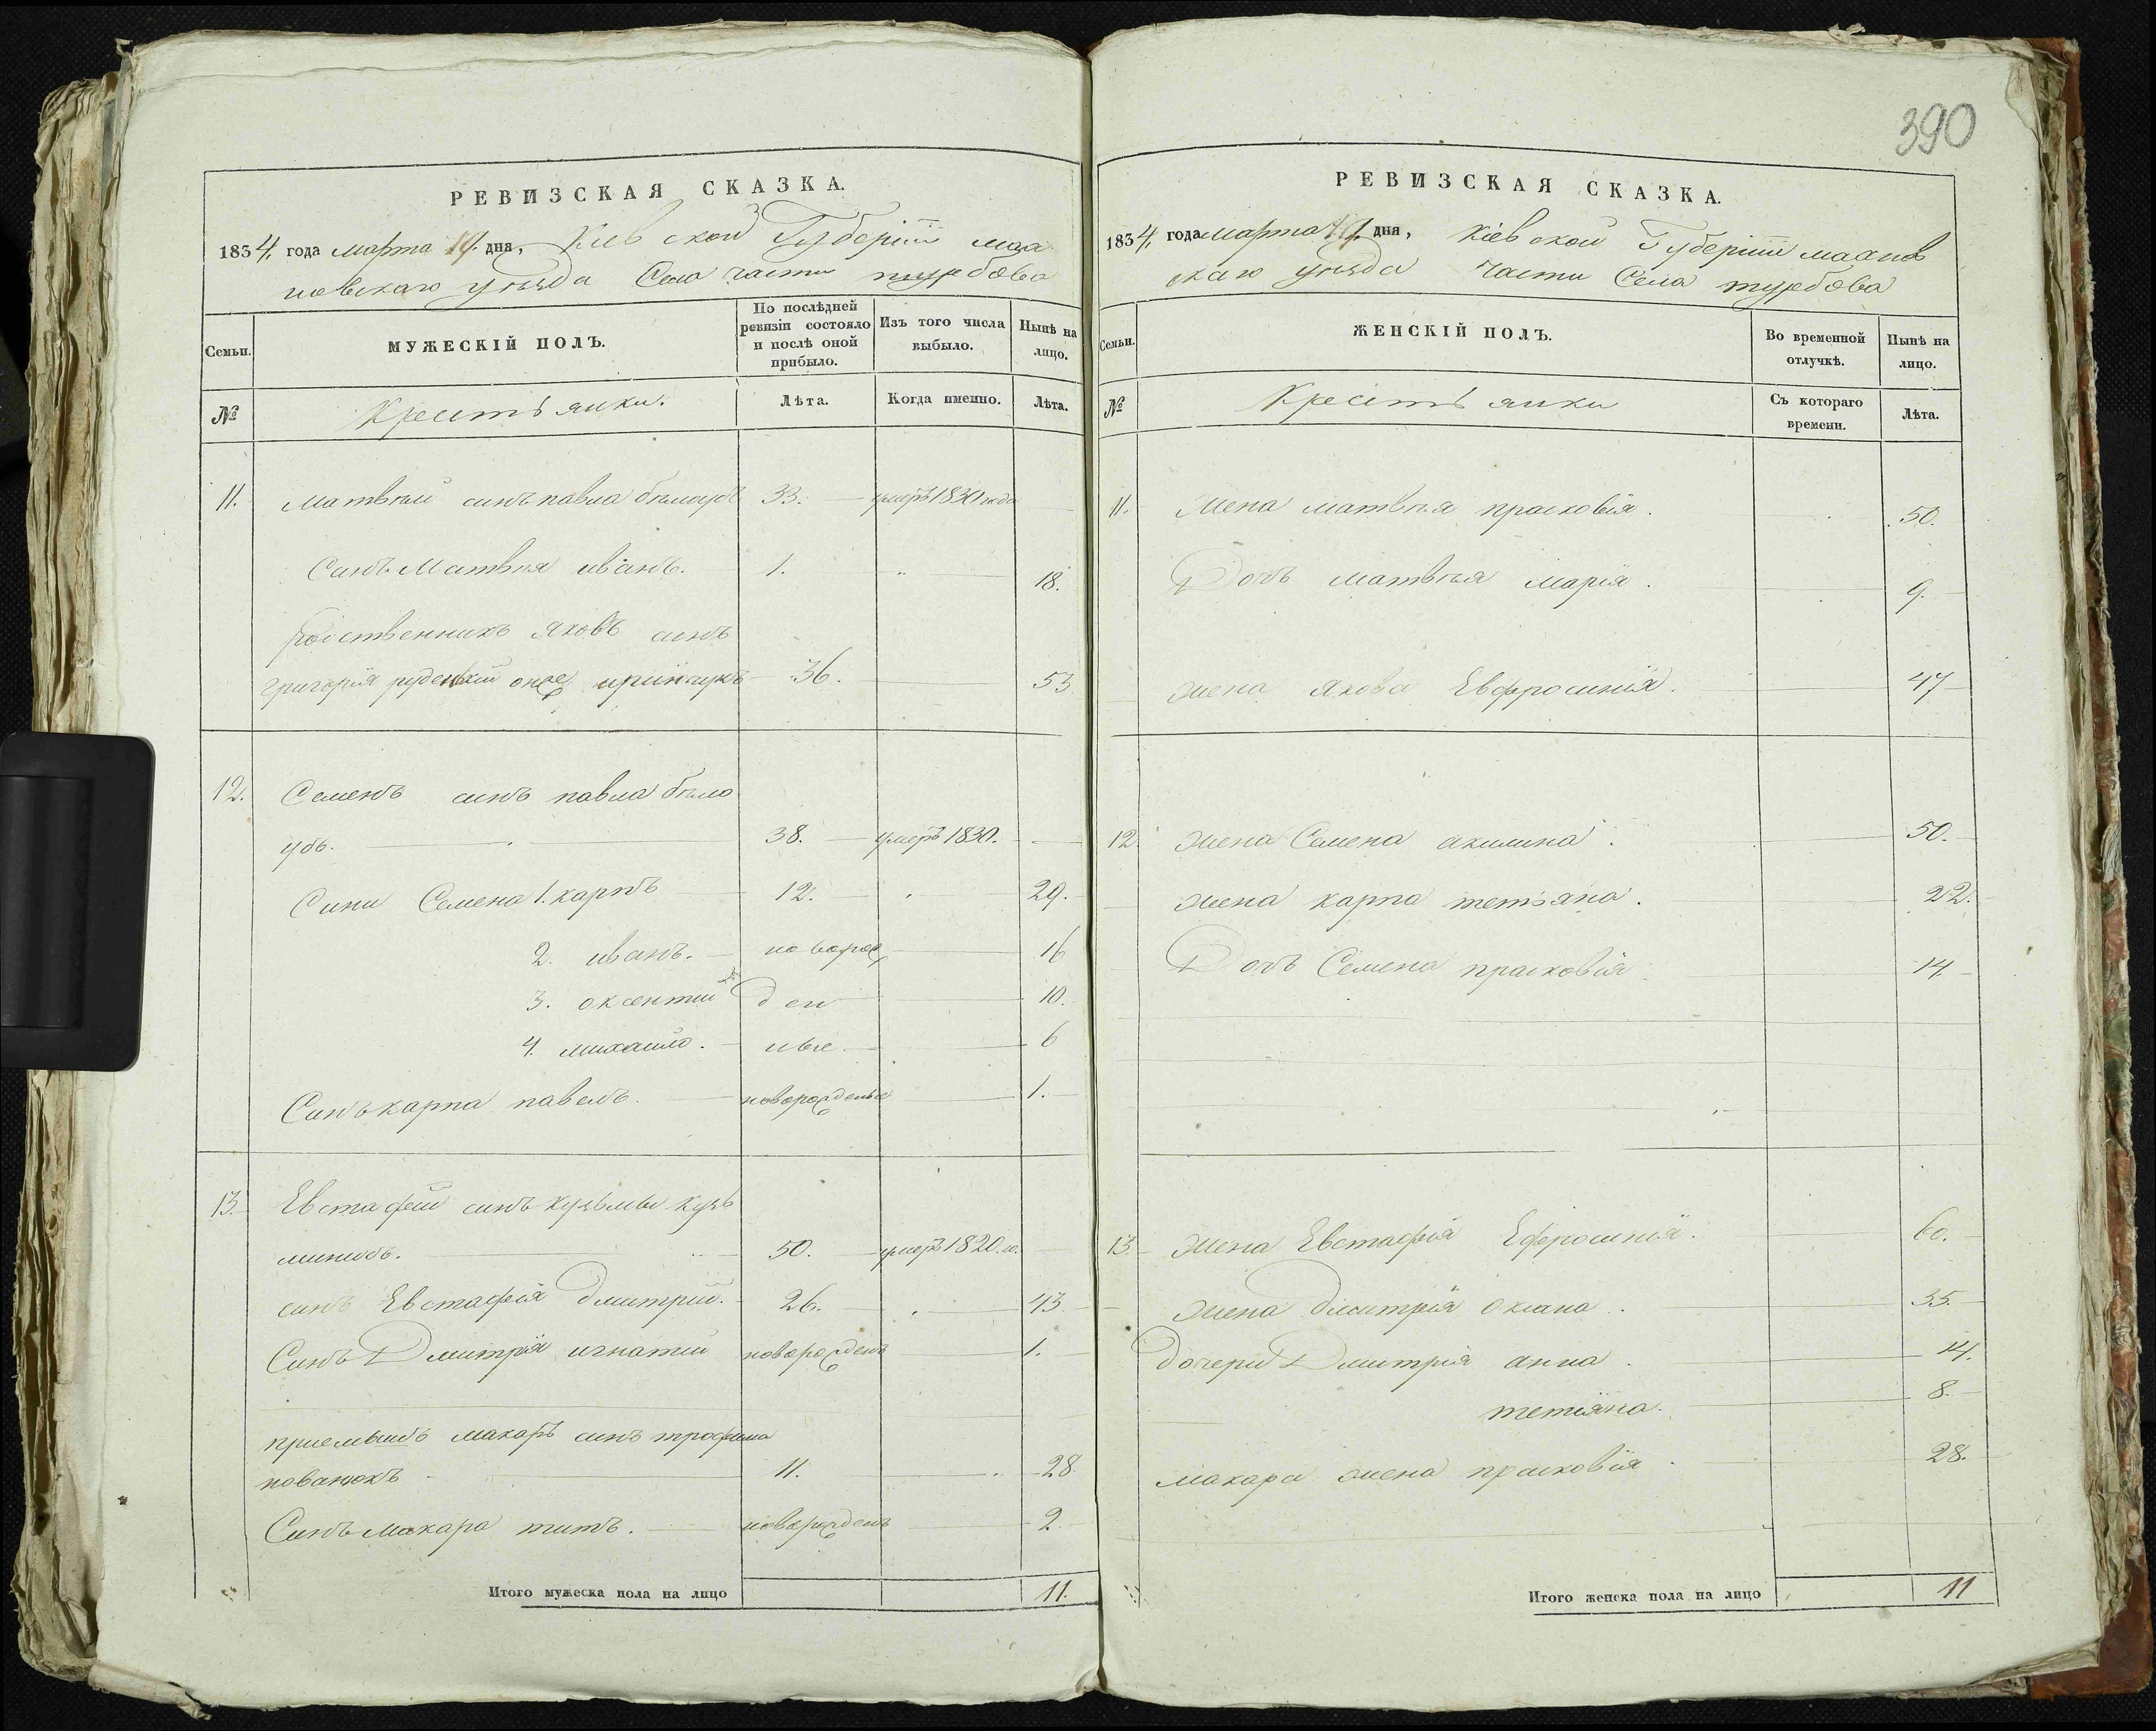 390
РЕВИЗСКАЯ СКАЗКА.
1834, года марта 19. дня, Кіевской Губерніи мах
новскаго уѣзда Села части турбова
Семьи.
МУЖЕСКІЙ ПОЛЪ.
По послѣдней ревизіи состояло и послѣ оной прибыло.
Изъ того числа выбыло.
Нынѣ на лицо.
№
Крестьянки.
Лѣта.
Когда именно.
Лѣта.
11. матвѣй синъ павла 33. умеръ 1830 года
Синъ Матвѣя иванъ. 1. 18.
родственникъ яковъ синъ
григорія онже 36. 53
12. Семенъ синъ павла бѣло
усъ. 38. умеръ 1830.
Сини Семена 1. карпъ 12. 29.
2. иванъ. новорож 16
3. оксентий ден 10.
4. михайло. ные 6
Синъ карпа павелъ. новорожденые 1.
13. Евстафей синъ кузьмы кузь
миновъ. 50. умеръ 1820. го.
синъ Евстафея Дмитрий. 26. 43
Синъ Дмитрія игнатий новорожденъ 1.
приемышъ макаръ синъ трофима
пованюкъ 11. 28
Синъ Макара титъ. новорожденъ 2.
Итого мужеска пола на лицо 11.
РЕВИЗСКАЯ СКАЗКА.
1834, года марта 19. дня, Кіевской Губерніи махнов
скаго уѣзда части Села турбова
Семьи.
ЖЕНСКІЙ ПОЛЪ.
Во временной отлучкѣ.
Нынѣ на лицо.
№
Крестьянки
Съ котораго времени.
Лѣта.
11. Жена матвѣя прасковія. 50.
Дочь матвѣя марія. 9.
жена якова Евфросинія. 47
12. жена Семена акилина. 50.
жена карпа тетьяна. 22.
Дочь Семена прасковія 14.
13. Жена Евстафія Ефросинія. 60.
Жена дмитрія Оксана. 35.
Дочери Дмитрія анна. 14.
тетіяна. 8.
макара жена прасковія. 28.
Итого женска пола на лицо 11